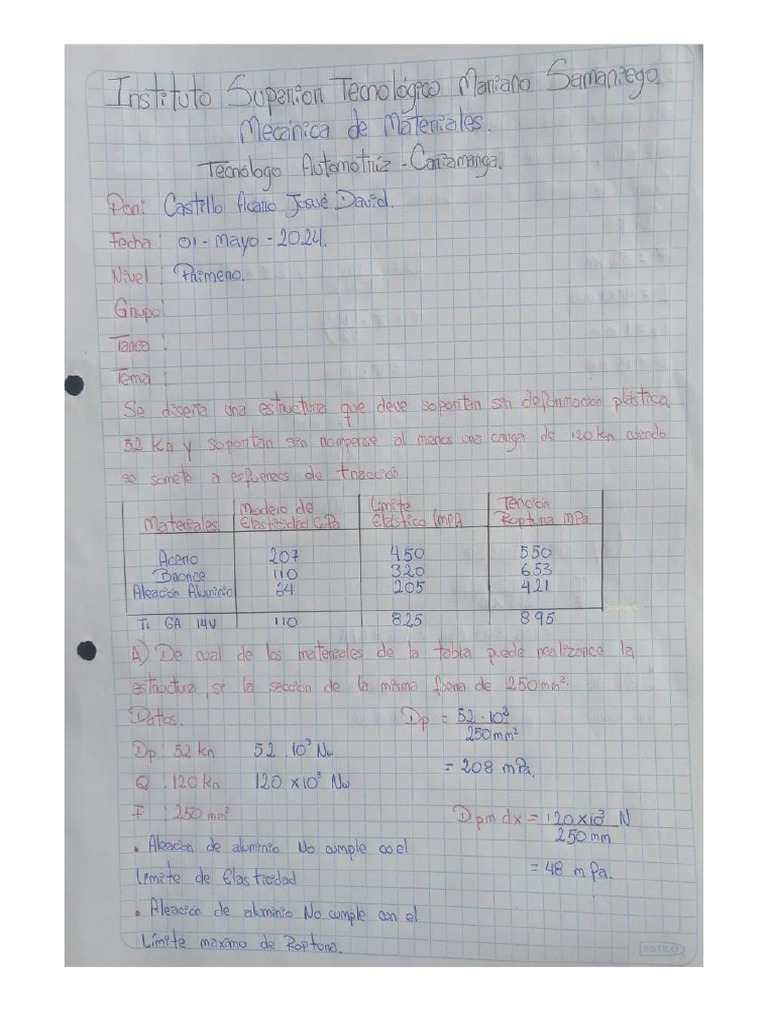 Instituto Superior Tecnológico Mariano Samaniego.
Mecánica de Materiales.
Tecnólogo Automotriz - Cariamanga.
Por: Castillo Acaro Josué David.
Fecha: 01 - Mayo - 2024.
Nivel: Primero.
Grupo:
Tarea:
Tema:
Se diseña una estructura que deve soportar sin deformación plástica,
52 kn y soportar sin romperse al menos una carga de 120 kn cuando
se somete a esfuerzos de tracción.
Materiales. Modelo de Elasticidad GPa Límite Elástico (MPA Tención Roptura MPa
Acero 207 450 550
Bronce 110 320 653
Aleación Aluminio 64 205 421
Ti 6A 14V 110 825 895
A) De cual de los materiales de la tabla puede realizarce la
estructura, se la sección de la misma fuera de 250 mm².
Datos. Dp = 52 · 10³ / 250 mm²
Dp: 52 kn 52 · 10³ Nw = 208 mPa.
Q : 120 kn 120 x 10³ Nw
F : 250 mm² Dpm dx = 120 x 10³ N / 250 mm
• Aleacion de aluminio No cumple co el = 48 m Pa.
límite de Elasticidad
• Aleació de aluminio No cumple con el
Límite maximo de Roptuna.
ESTILO